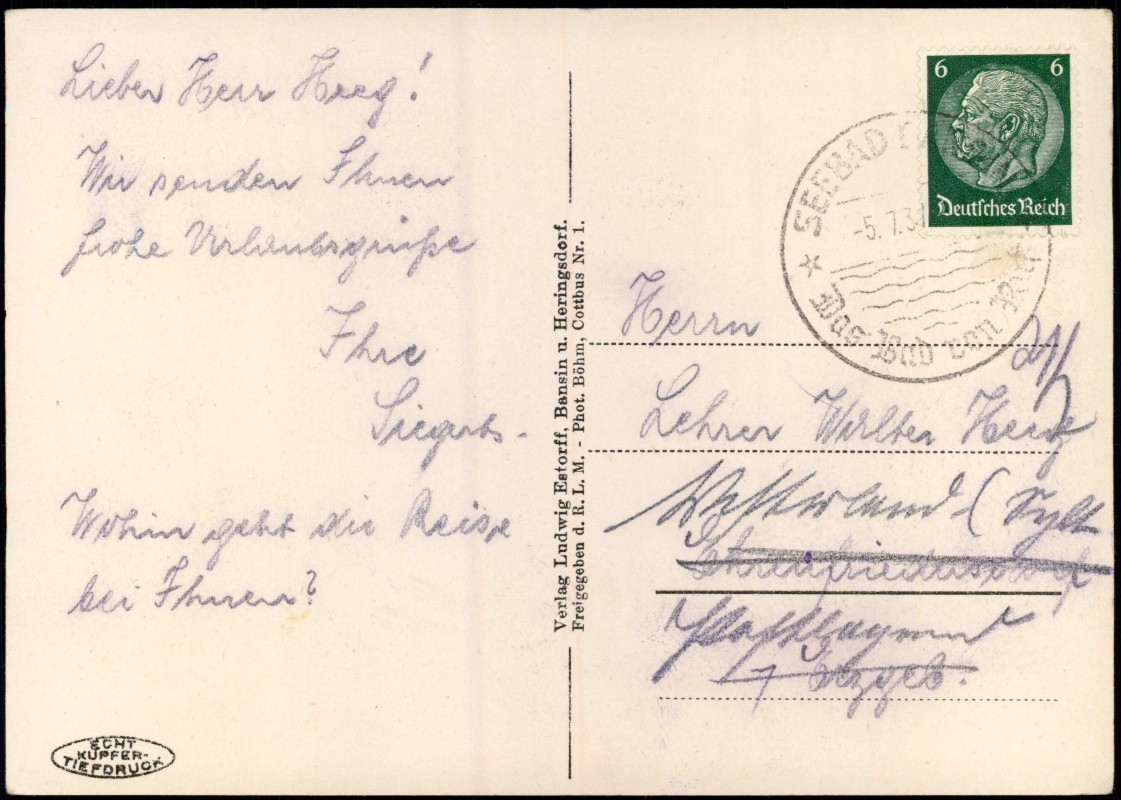 Lieber Herr Heeg!
Wir senden Ihnen
frohe Urlaubsgrüße
Ihre
Siegerts.
Wohin geht die Reise
bei Ihnen?
ECHT
KUPFER-
TIEFDRUCK
Verlag Ludwig Estorff, Bansin u. Heringsdorf.
Freigegeben d. R. L. M. - Phot. Böhm, Cottbus Nr. 1.
6 6
Deutsches Reich
SEEBAD
-5.7.3
Das Bad von
Herrn
Lehrer Walter Heeg
Westerland (Sylt
Ehrenfriedersdorf
Postlagernd
Erzgeb.